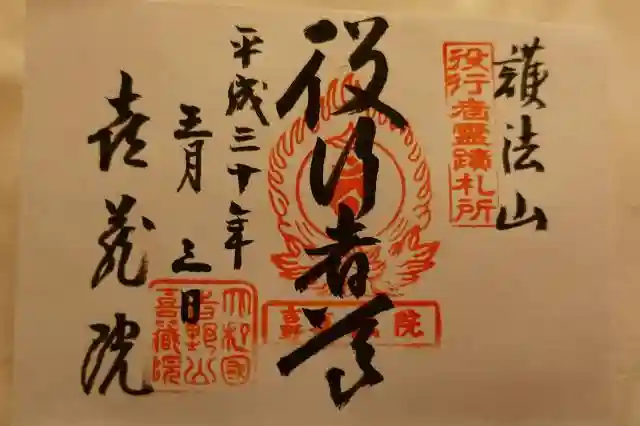 護法山
役行者霊蹟札所
役行者尊
院
吉野
平成三十年
五月三日
大和国
吉野山
喜蔵院
喜蔵院